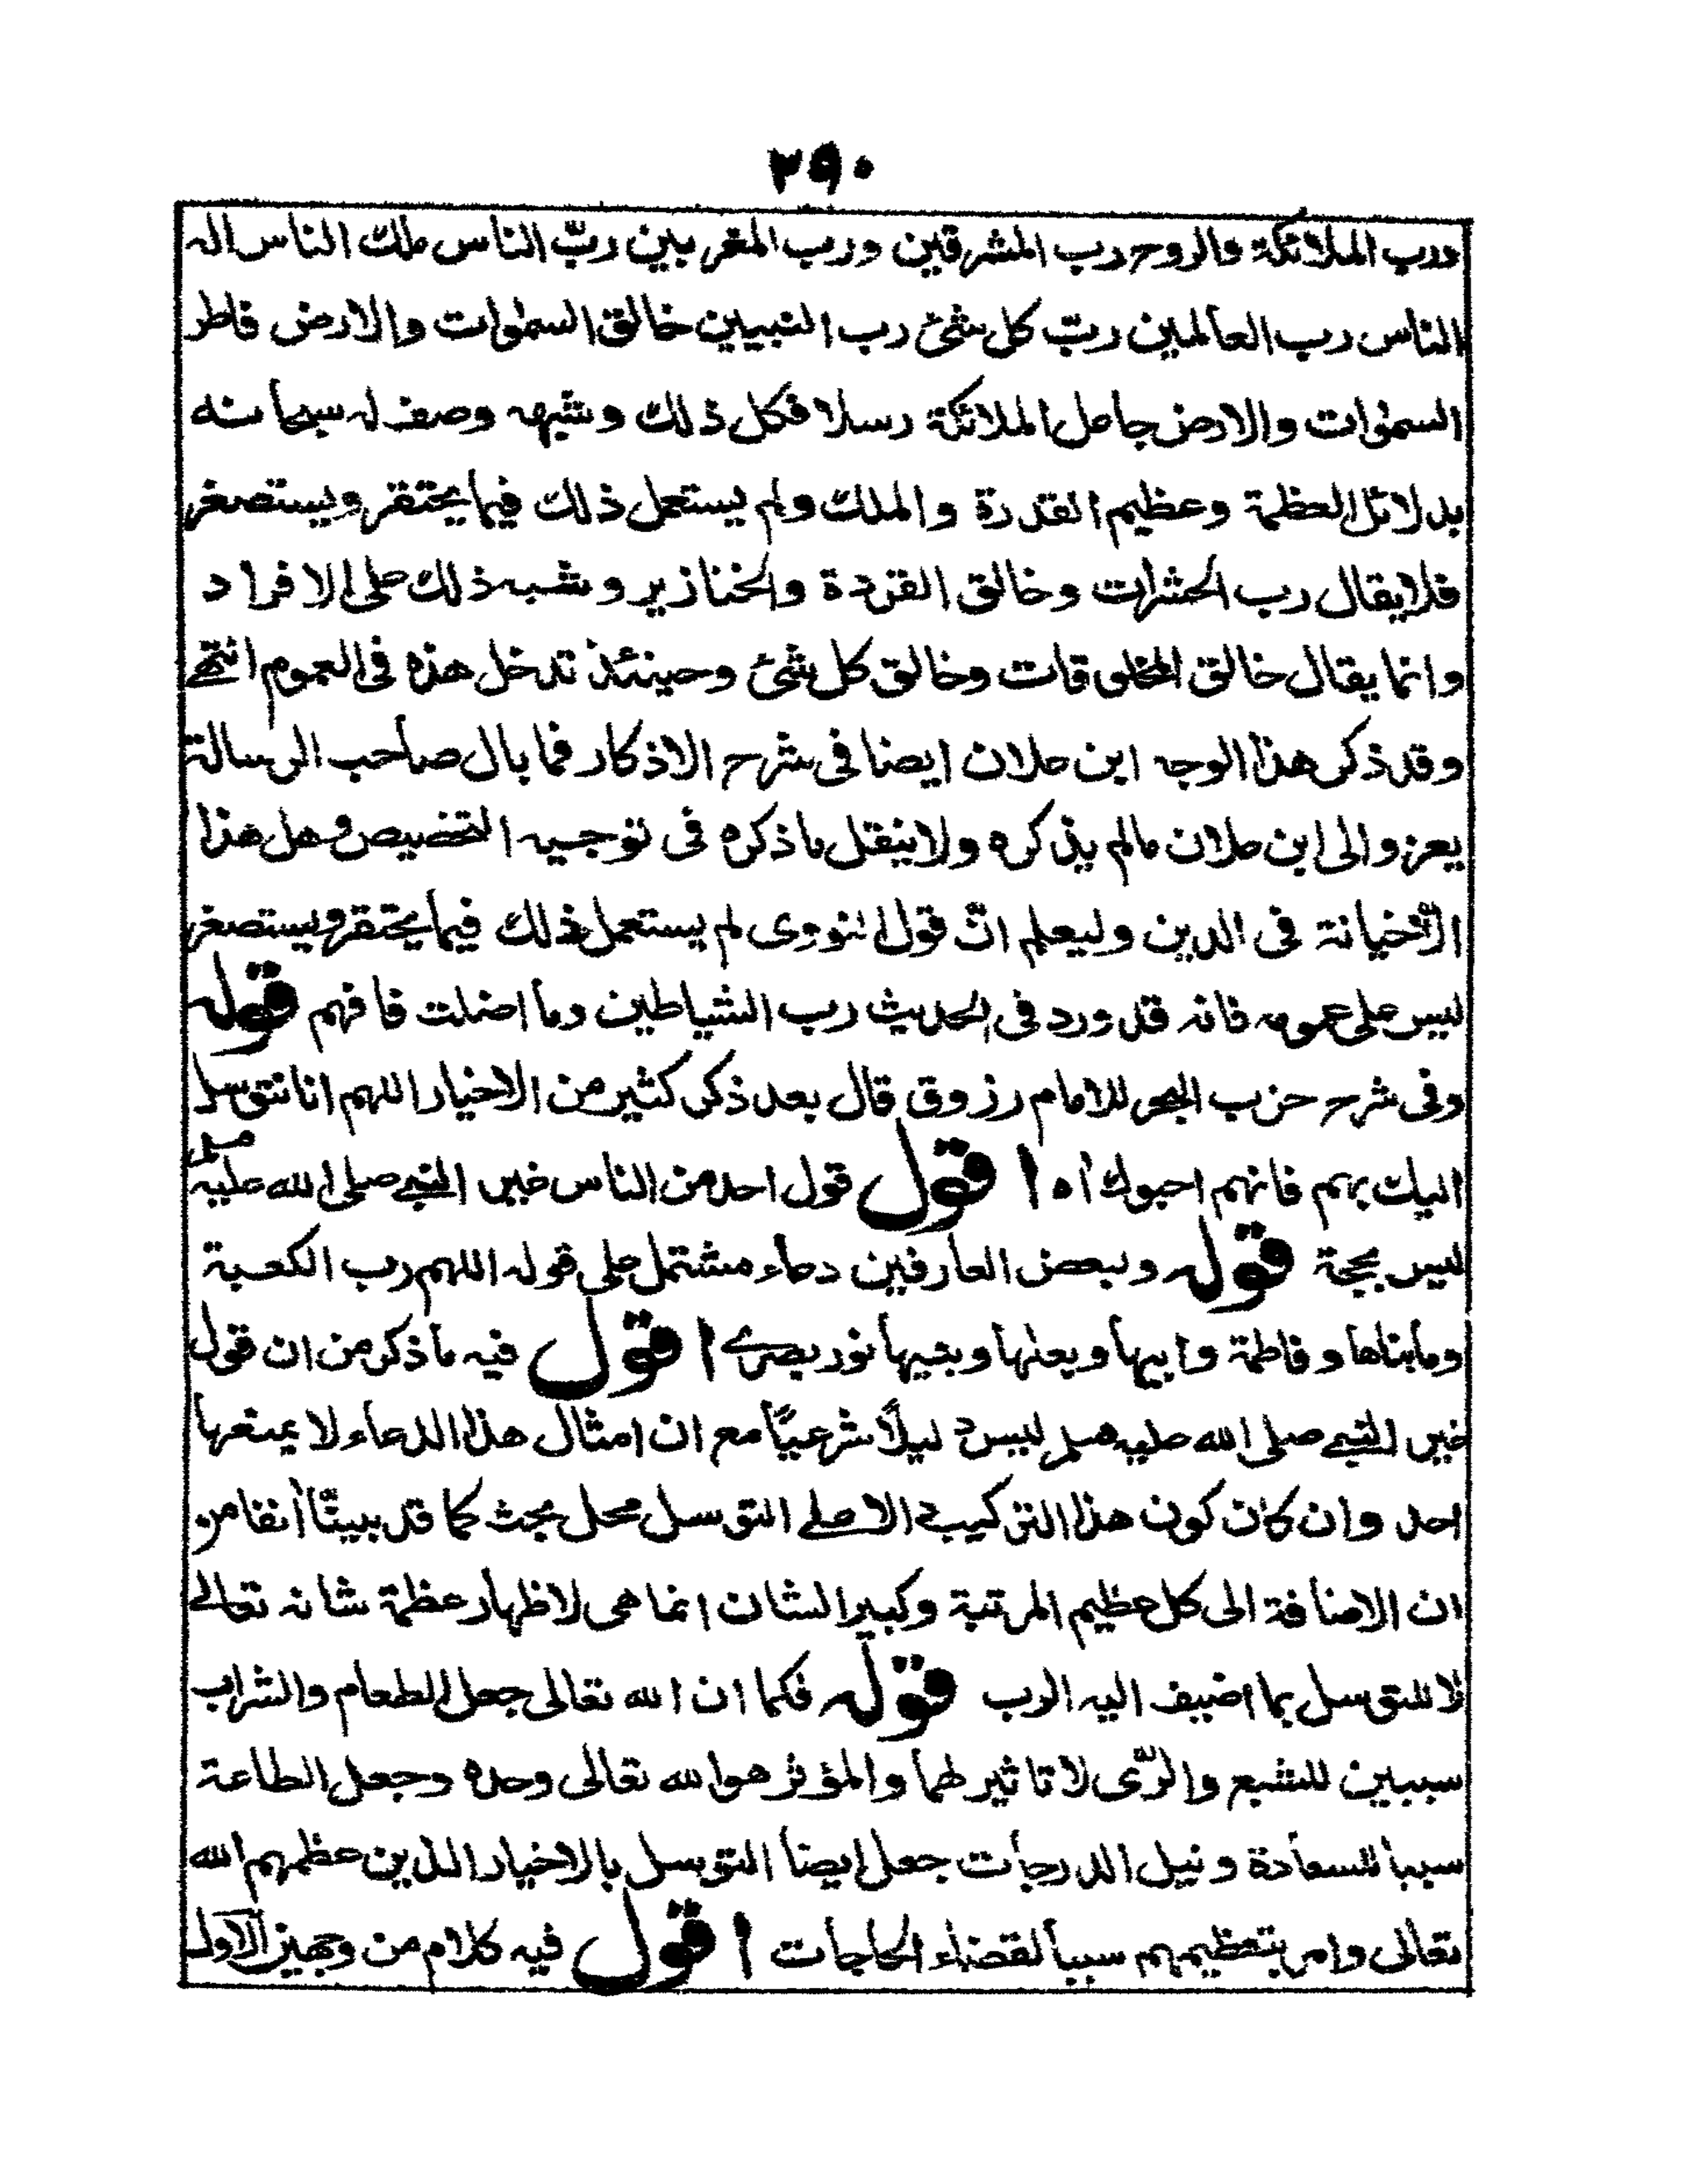 ٢٩٠
ورب الملائكة والروح رب المشرقين ورب المغربين ربّ الناس ملك الناس اله
الناس رب العالمين ربّ كل شئ رب النبيين خالق السمٰوات والارض فاطر
السمٰوات والارض جاعل الملائكة رسلا فكل ذلك وشبهه وصف له سبحانه
بدلائل العظمة وعظيم القدرة والملك ولم يستعمل ذلك فيما يحتقر ويستصغر
فلا يقال رب الحشرات وخالق القردة والخنازير وشبه ذلك على الافراد
وانما يقال خالق المخلوقات وخالق كل شئ وحينئذ تدخل هذه فى العموم انتهے
وقد ذكر هذا الوجه ابن علان ايضا فى شرح الاذكار فما بال صاحب الرسالة
يعزو الى ابن علان مالم يذكره ولا ينقل ما ذكره فى توجيه التخصيص وهل هذا
الّا خيانة فى الدين وليعلم انّ قول النووى لم يستعمل ذلك فيما يحتقر ويستصغر
ليس على عمومه فانه قد ورد فى الحديث رب الشياطين وما اضلت فافهم قوله
وفى شرح حزب البحر للامام رزوق قال بعد ذكر كثير من الاخيار اللهم انا نتوسل
اليك بهم فانهم احبوك اه اقول قول احد من الناس غير النبے صلى الله عليه وسلم
ليس بحجة قوله ولبعض العارفين دعاء مشتمل على قوله اللهم رب الكعبة
وما بناها وفاطمة وابيها وبعلها وبنيها نور بصرے اقول فيه ما ذكر من ان قول
غير النبے صلى الله عليه وسلم ليس دليلًا شرعيًا مع ان امثال هذا الدعاء لا يمنعها
احد وان كان كون هذا التركيب الاصلے التوسل محل بحث كما قد بينّا آنفا من
ان الاضافة الى كل عظيم المرتبة وكبير الشان انما هى لاظهار عظمة شانه تعالے
لا للتوسل بما اضيف اليه الرب قوله فكما ان الله تعالى جعل الطعام والشراب
سببين للشبع والرّى لا تاثير لهما والمؤثر هو الله تعالى وحده وجعل الطاعة
سببا للسعادة ونيل الدرجات جعل ايضا التوسل بالاخيار الذين عظمهم الله
تعالى وامر بتعظيمهم سببا لقضاء الحاجات اقول فيه كلام من وجهين الاول